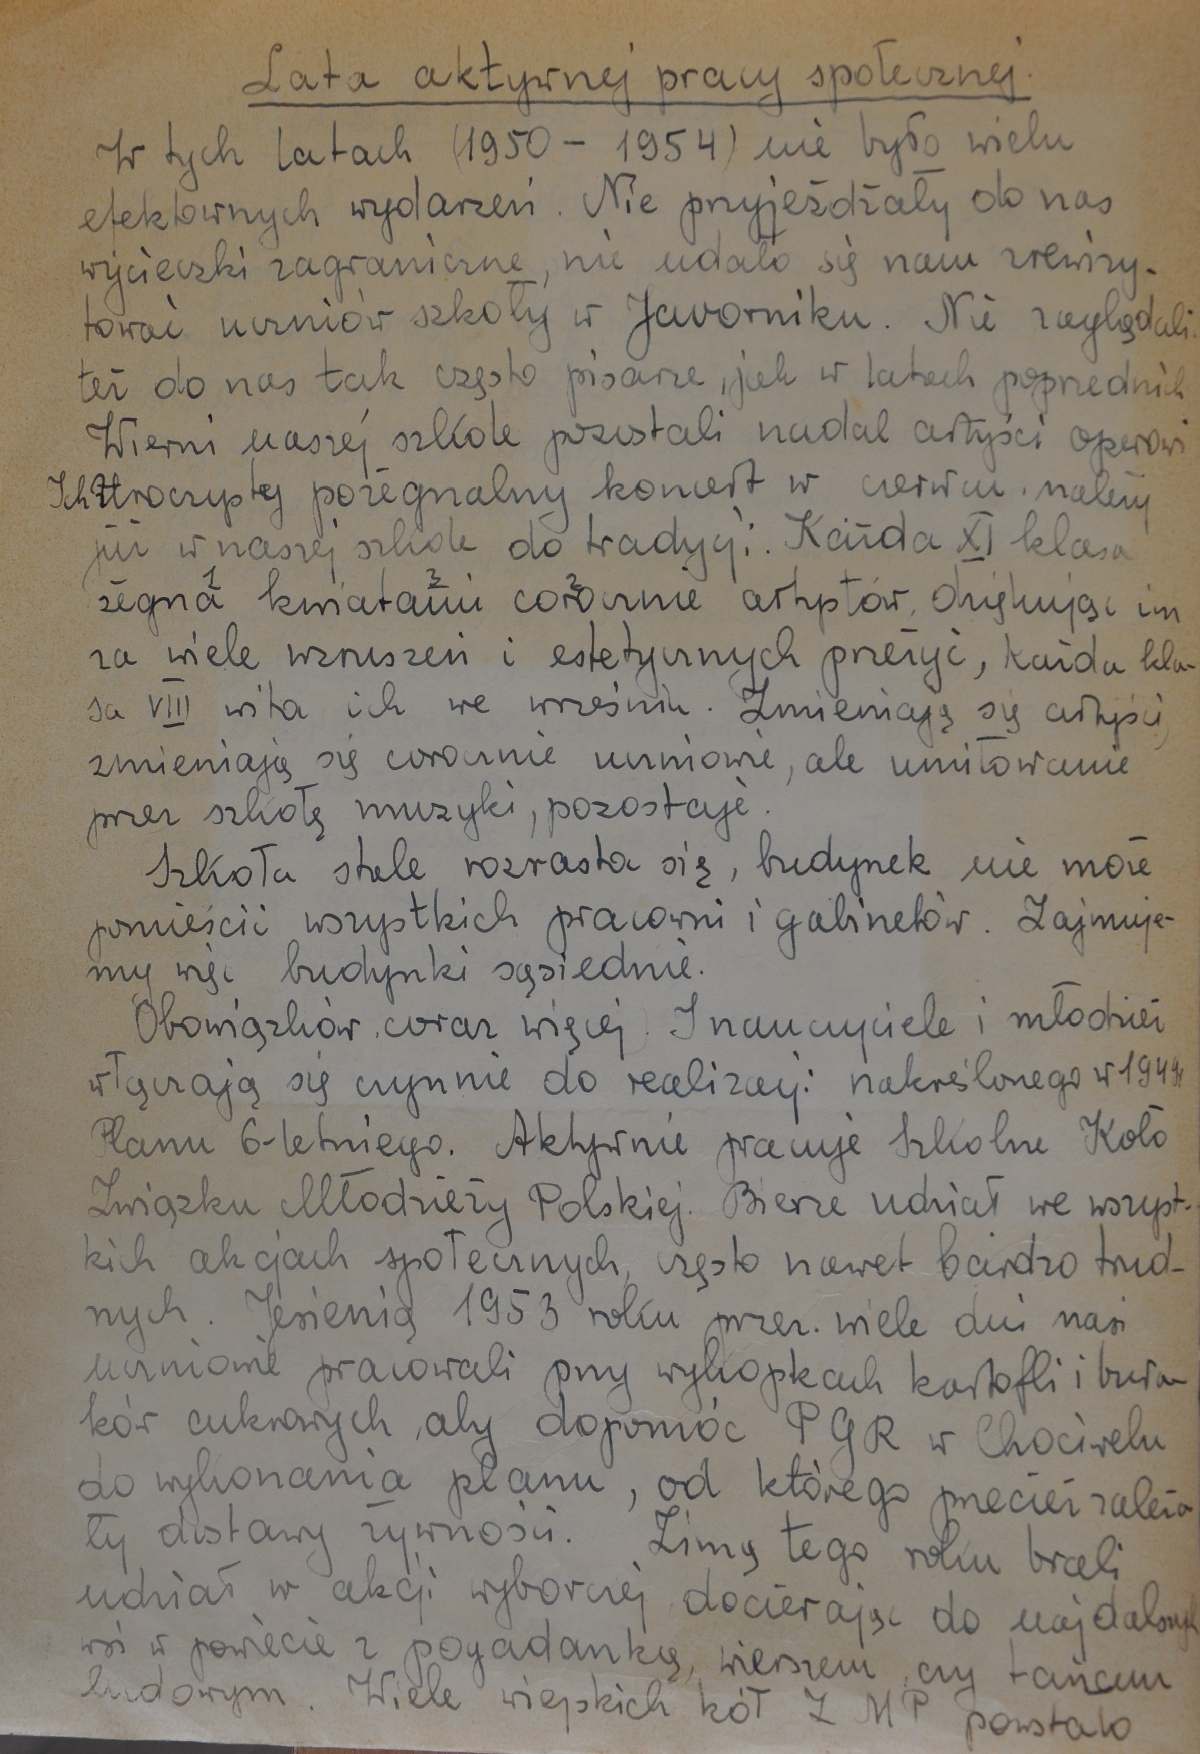 Lata aktywnej pracy społecznej.
W tych latach (1950 - 1954) nie było wielu
efektownych wydarzeń. Nie przyjeżdżały do nas
wycieczki zagraniczne, nie udało się nam zrewizy-
tować uczniów szkoły w Javorniku. Nie zaglądali
też do nas tak często pisarze, jak w latach poprzednich
Wierni naszej szkole pozostali nadal artyści operowi
Ich uroczysty pożegnalny koncert w czerwcu należy
już w naszej szkole do tradycji. Każda XI klasa
żegna 1 kwiatami 3 corocznie 2 artystów, dziękując im
za wiele wzruszeń i estetycznych przeżyć, każda kla-
sa VIII wita ich we wrześniu. Zmieniają się artyści,
zmieniają się corocznie uczniowie, ale umiłowanie
przez szkołę muzyki, pozostaje.
Szkoła stale rozrasta się, budynek nie może
pomieścić wszystkich pracowni i gabinetów. Zajmuje-
my więc budynki sąsiednie.
Obowiązków coraz więcej. I nauczyciele i młodzież
włączają się czynnie do realizacji nakreślonego w 1949r
Planu 6-letniego. Aktywnie pracuje Szkolne Koło
Związku Młodzieży Polskiej. Bierze udział we wszyst-
kich akcjach społecznych, często nawet bardzo trud-
nych. Jesienią 1953 roku przez wiele dni nasi
uczniowie pracowali przy wykopkach kartofli i bura-
ków cukrowych, aby dopomóc PGR w Chociwelu
do wykonania planu, od którego przecież zależa
ły dostawy żywności. Zimą tego roku brali
udział w akcji wyborczej docierając do najdalszych
wsi w powiecie z pogadanką, wierszem, czy tańcem
ludowym. Wiele wiejskich kół Z M P powstało